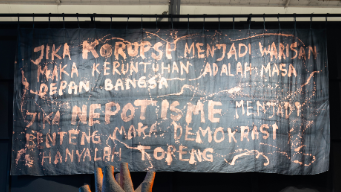 JIKA KORUPSI MENJADI WARISAN
MAKA KERUNTUHAN ADALAH MASA
DEPAN BANGSA
JIKA NEPOTISME MENJADI
BANTENG MAKA DEMOKRASI
HANYALAH TOPENG